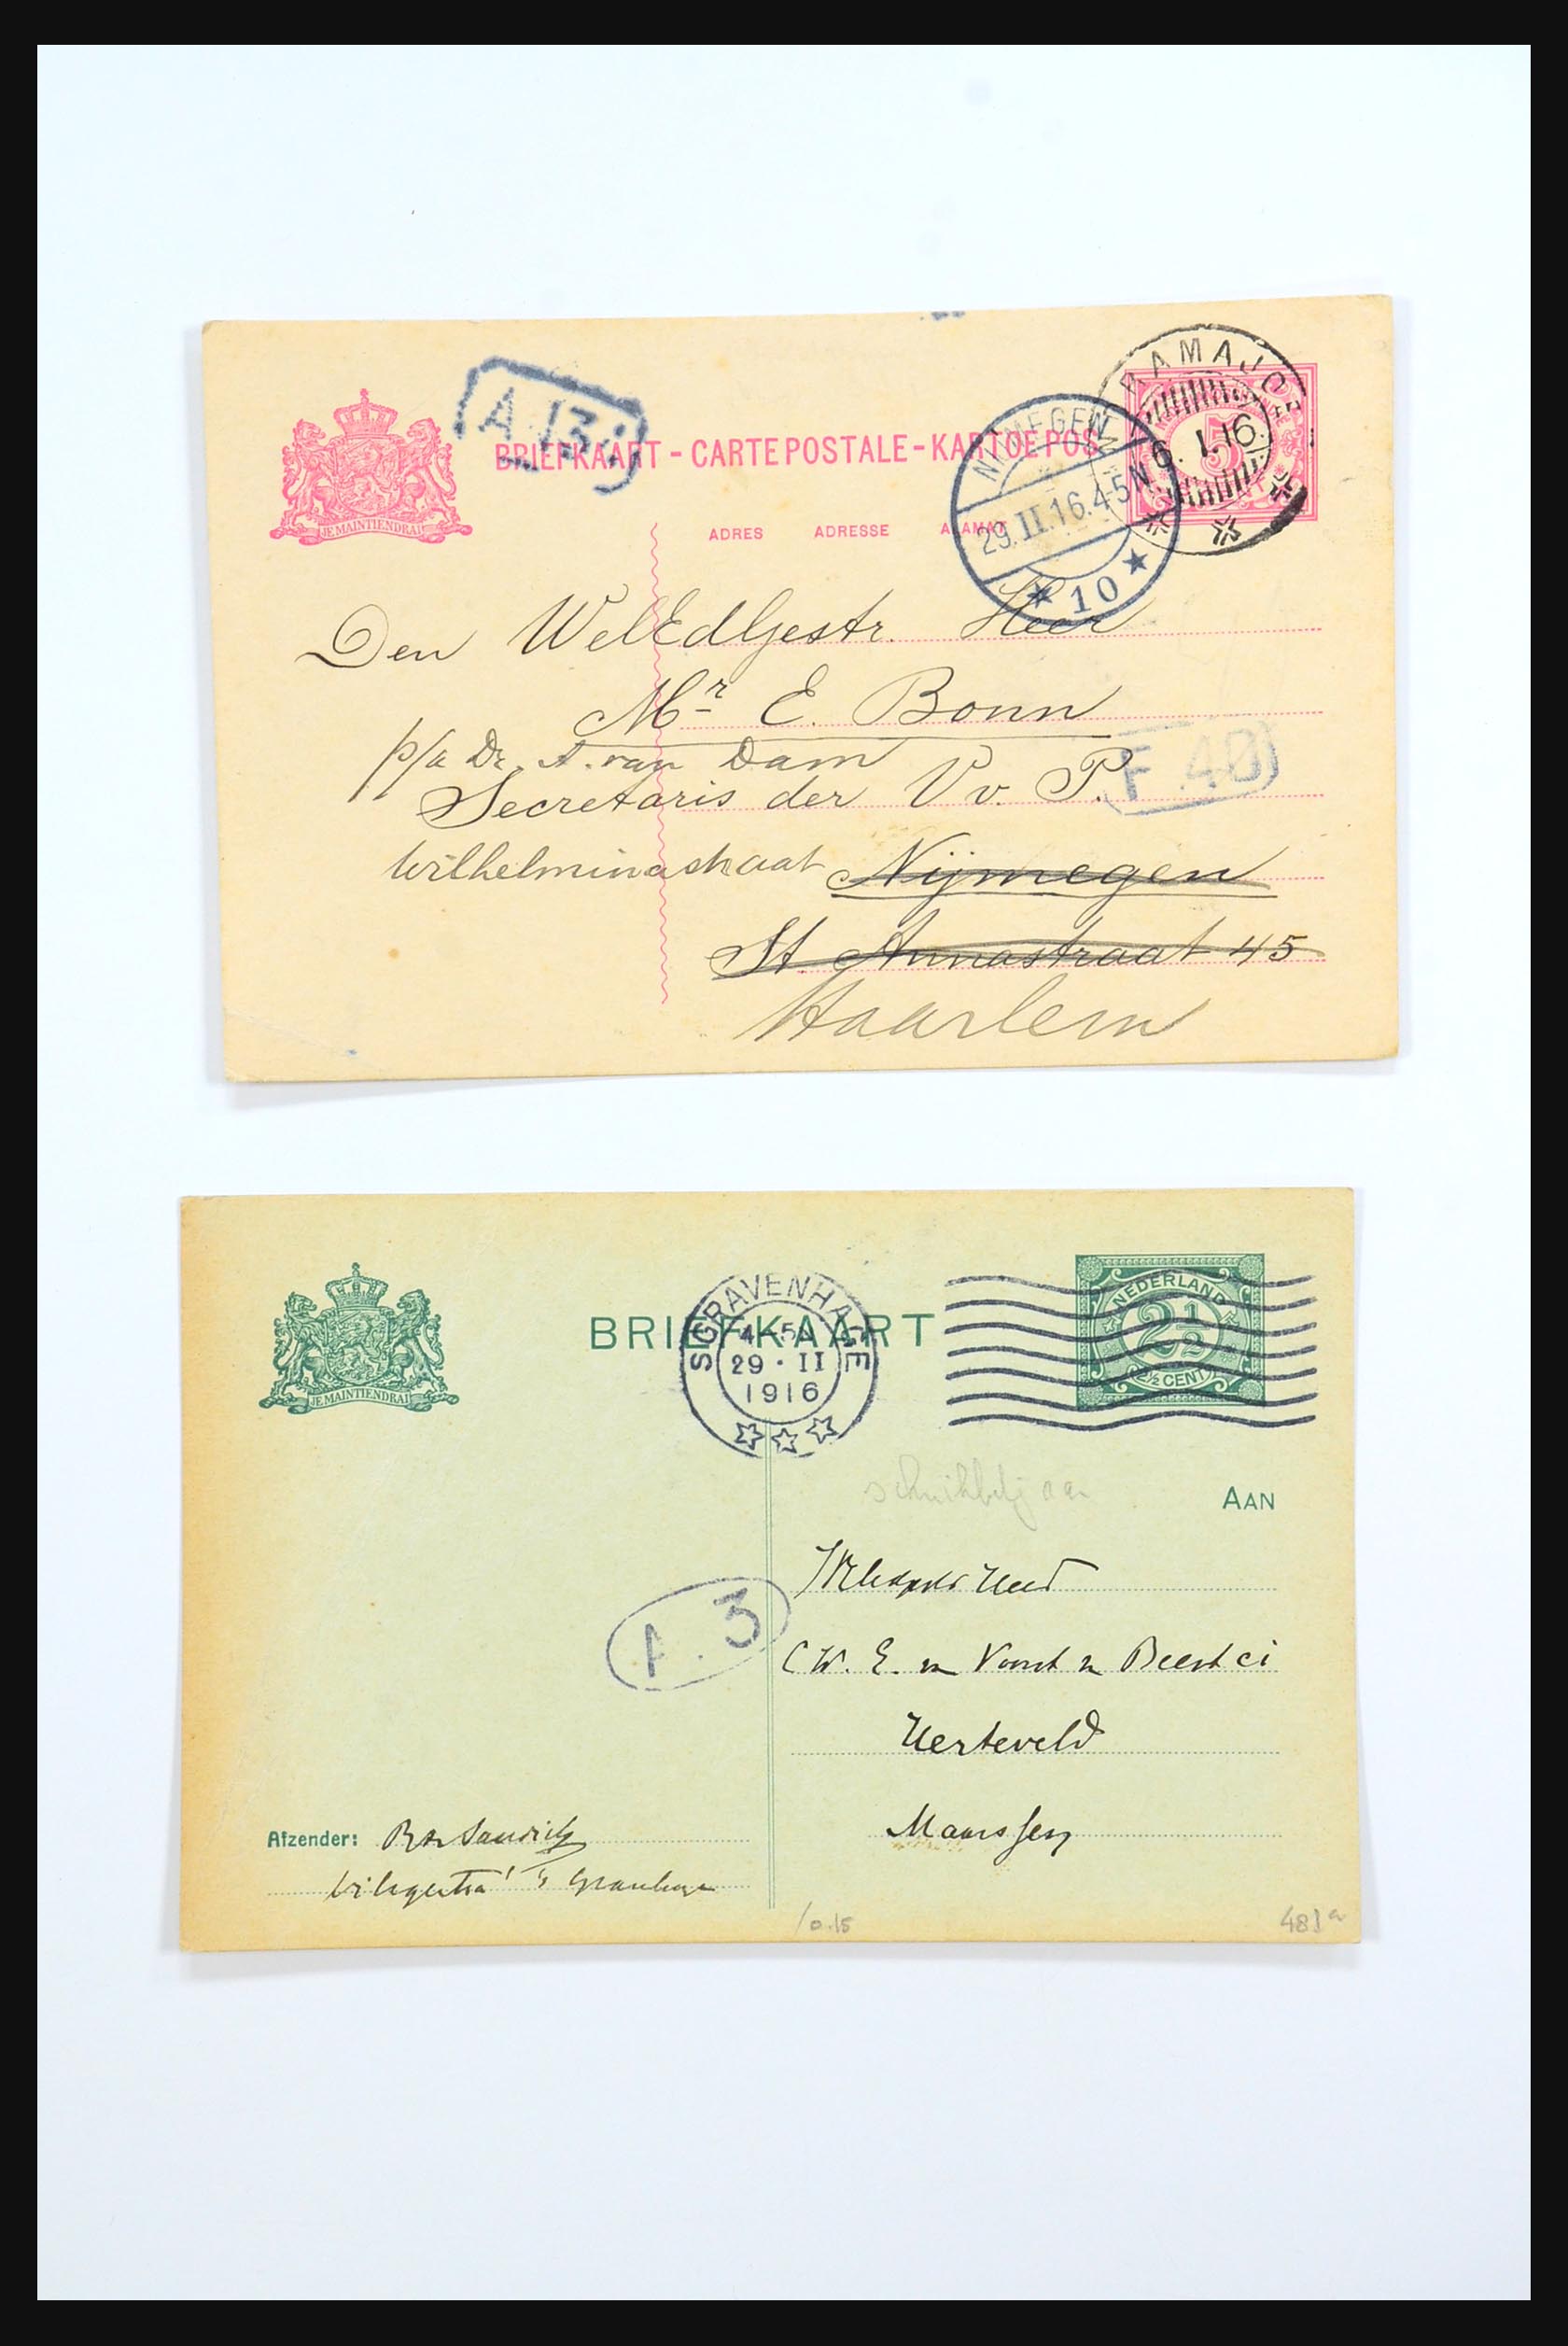 A 13
BRIEFKAART - CARTE POSTALE - KARTOE POS
JE MAINTIENDRAI
ADRES ADRESSE ALAMAT
NIJMEGEN
29.II.16.4-5N
10
AMAJOE
6.1.16
5
Den WelEdGestr. Heer
Mr E. Bonn
p/a Dr. A. van Dam
Secretaris der V v. P.
F 40
Wilhelminastraat Nijmegen
St. Annastraat 45
Haarlem
BRIEFKAART
JE MAINTIENDRAI
S GRAVENHAGE
4-5N
29 · II
1916
NEDERLAND
2½
2½ CENT
AAN
A. 3
C W. E. Voorst Beest
Herteveld
Maarssen
Afzender:
/0.15
481a